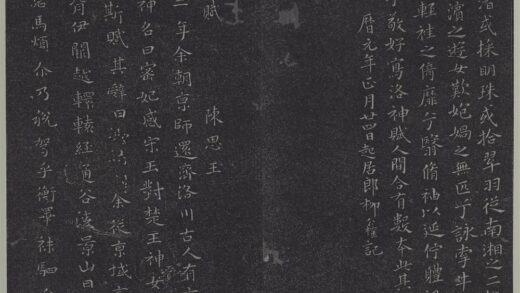 渚或採明珠或拾翠羽從南湘之二
濱之遊女歎匏媧之無匹兮詠牽牛
輕袿之倚靡兮翳脩袖以延佇體
子敬好寫洛神賦人間合有數本此其
曆元年正月廿四日起居郎柳權記
賦 陳思王
三年余朝京師還濟洛川古人有
神名曰宓妃感宋玉對楚王神女
斯賦其辭曰余從京域
背伊闕越轘轅經通谷陵景山日
馬煩尒乃税駕乎衡皋秣駟